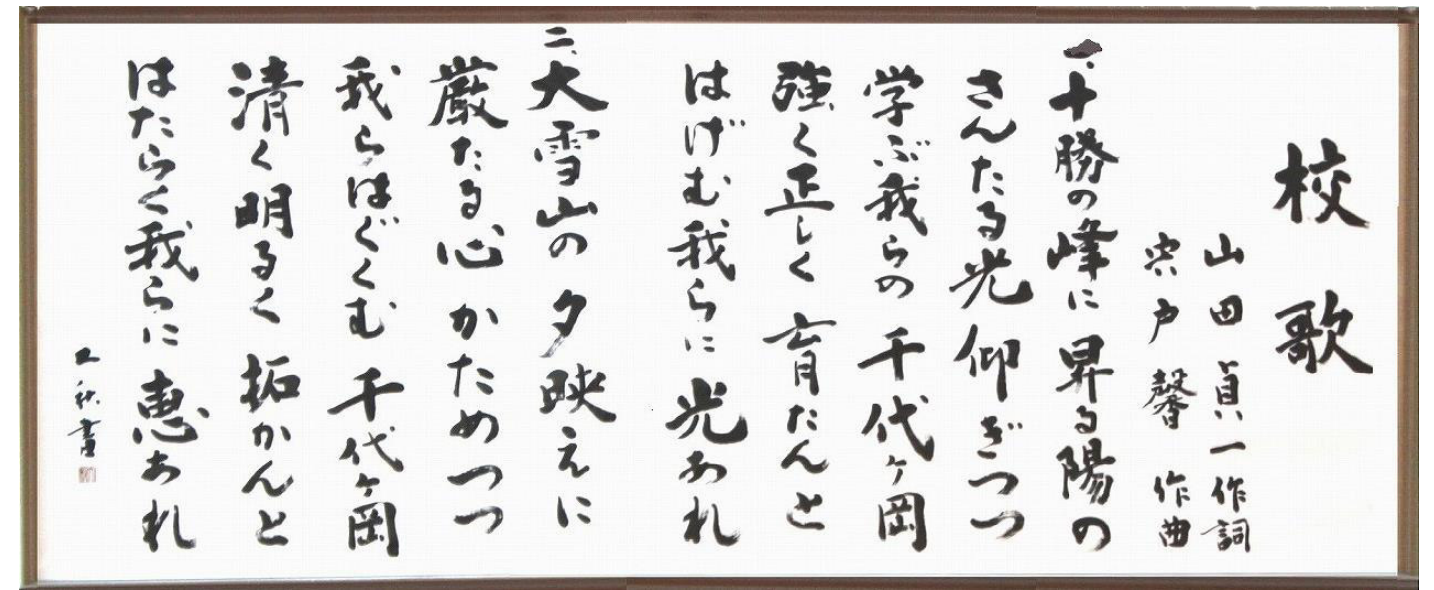 校歌
山田貞一作詞
宍戸馨作曲
一、十勝の峰に昇る陽の
さんたる光仰ぎつつ
学ぶ我らの千代ヶ岡
強く正しく育たんと
はげむ我らに光あれ
二、大雪山の夕映えに
厳たる心かためつつ
我らはぐくむ千代ヶ岡
清く明るく拓かんと
はたらく我らに恵あれ
秋書